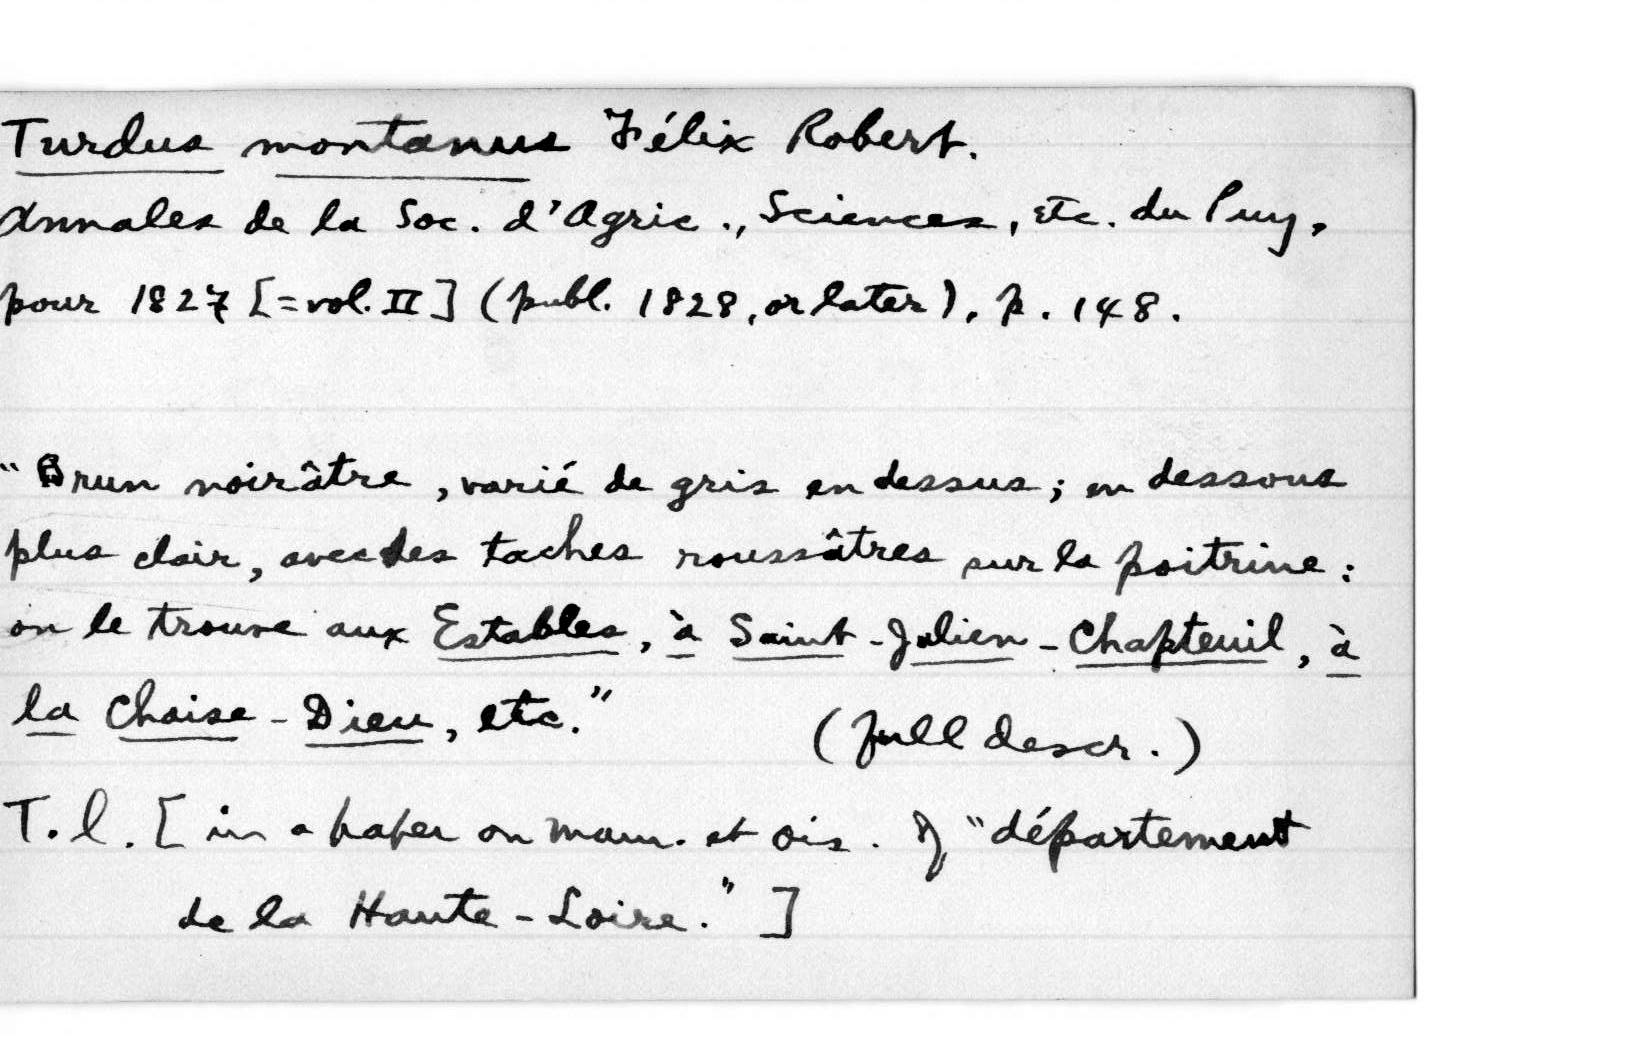 Turdus montanus Félix Robert.
Annales de la Soc. d'Agric., Sciences, etc. du Puy,
pour 1827 [=vol. II] (publ. 1828, or later), p. 148.
"Brun noirâtre, varié de gris en dessus; en dessous
plus clair, avec des taches roussâtres sur la poitrine:
on le trouve aux Estables, à Saint-Julien-Chapteuil, à
la Chaise-Dieu, etc."
(full descr.)
T.l. [in a paper on mam. et ois. of "département
de la Haute-Loire."]